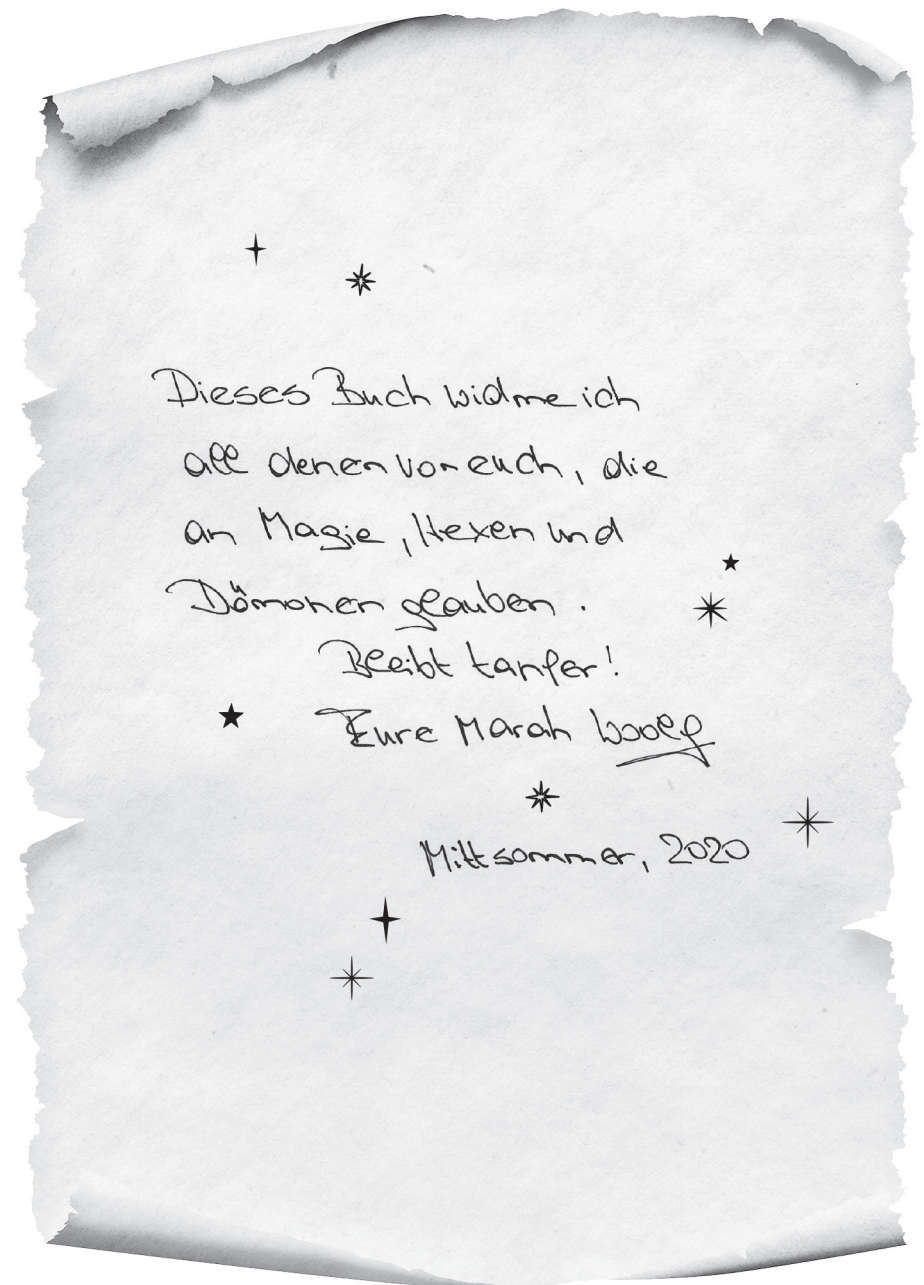 Dieses Buch widme ich
all denen von euch, die
an Magie, Hexen und
Dämonen glauben.
Bleibt tapfer!
Eure Marah Woolf
Mittsommer, 2020